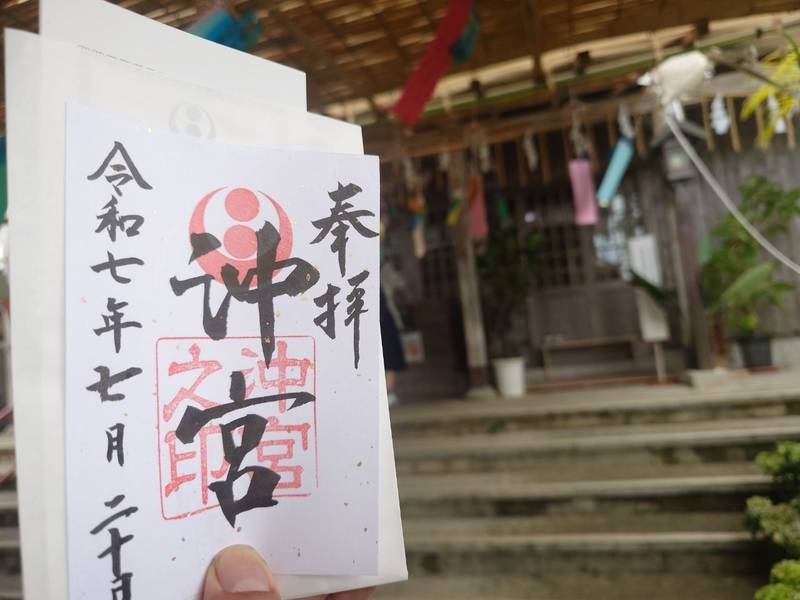 奉拝
沖宮
沖宮
之印
令和七年七月二十日